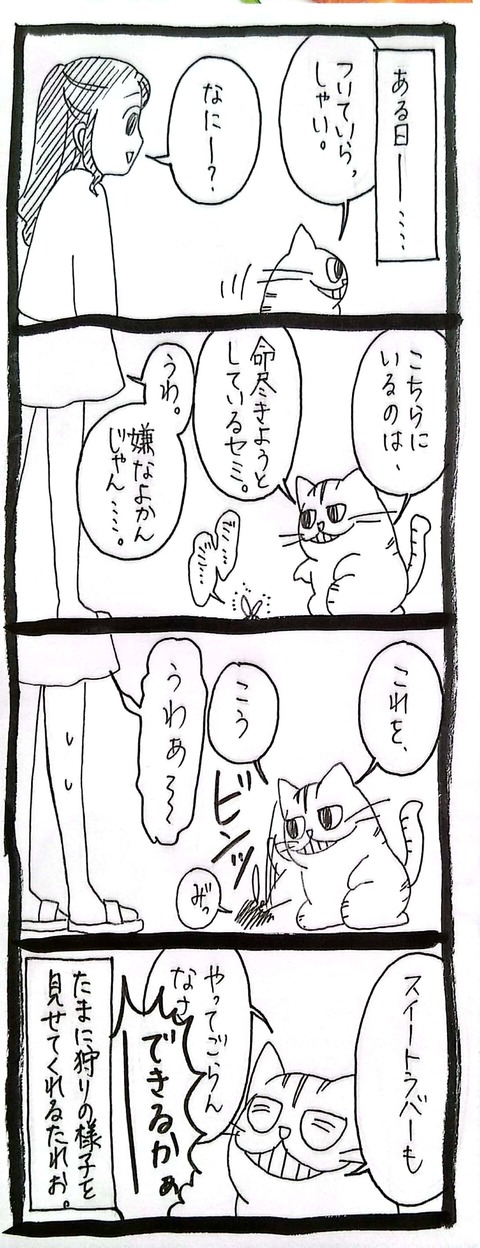 ある日——……
ついていらっ
しゃい。
なにー?
こちらに
いるのは、
命尽きようと
しているセミ。
うわ。
嫌なよかん
じゃん……。
これを、
こう
ビンッ
みっ
うわぁ〜〜
スイートラバーも
やってごらん
なさい
できるかぁ
たまに狩りの様子を
見せてくれるたれお。